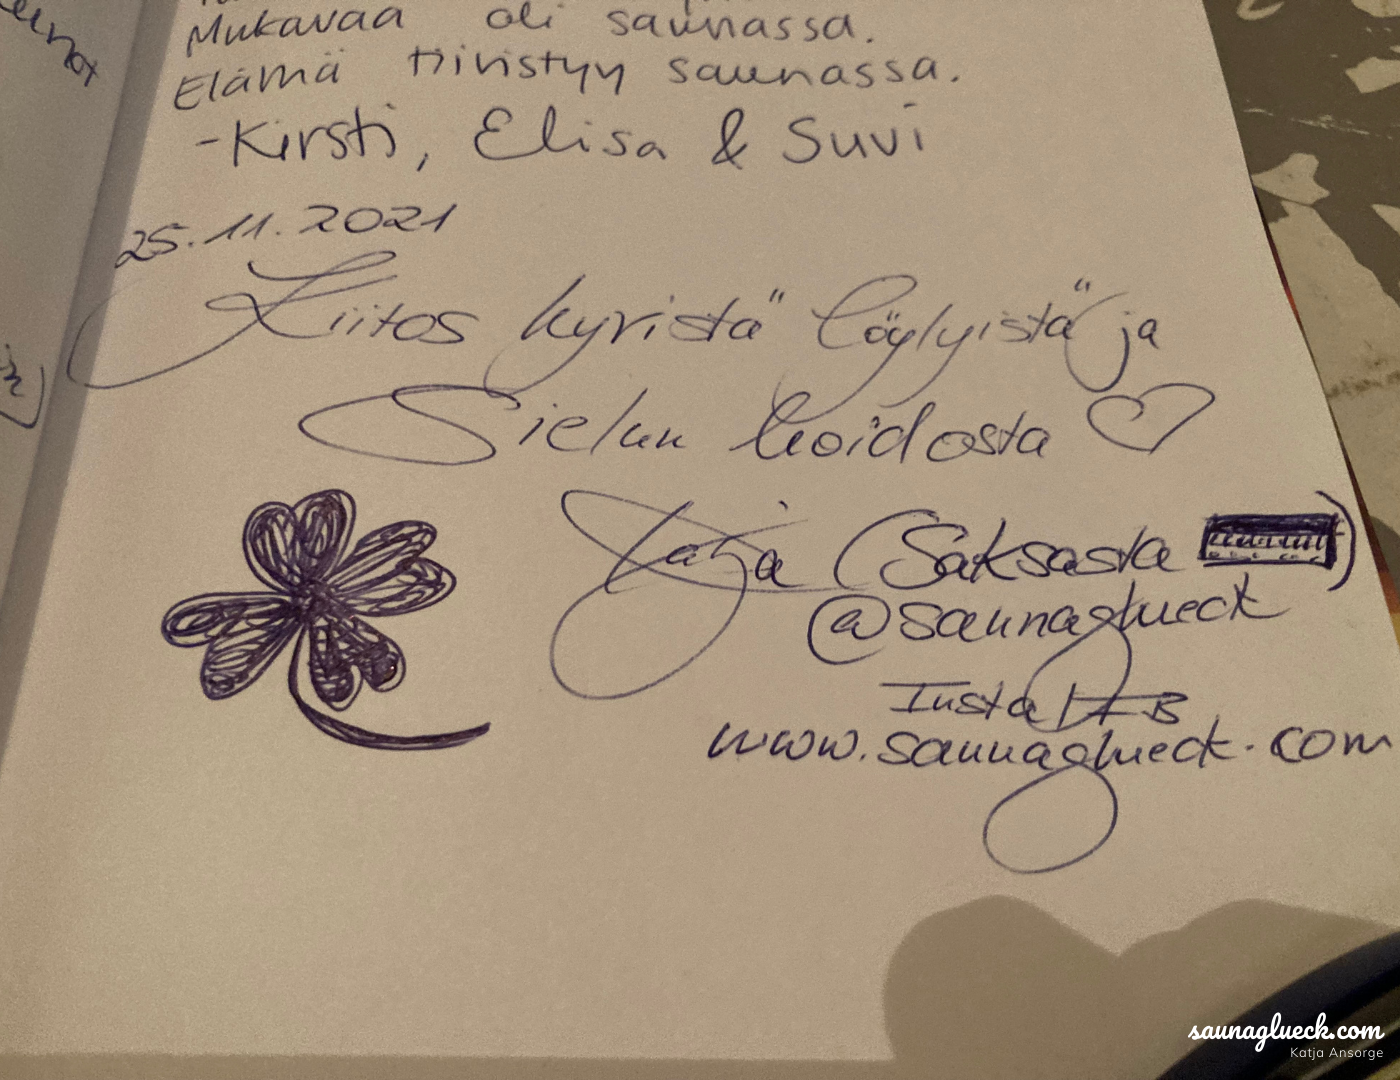 Mukavaa oli saunassa.
Elämä tiivistyy saunassa.
-Kirsti, Elisa & Suvi
25.11.2021
Kiitos kyristä löylyistä ja
Sielun hoidosta ♡
Katja (Saksasta)
@saunaglueck
Insta/FB
www.saunaglueck.com
saunaglueck.com
Katja Ansorge